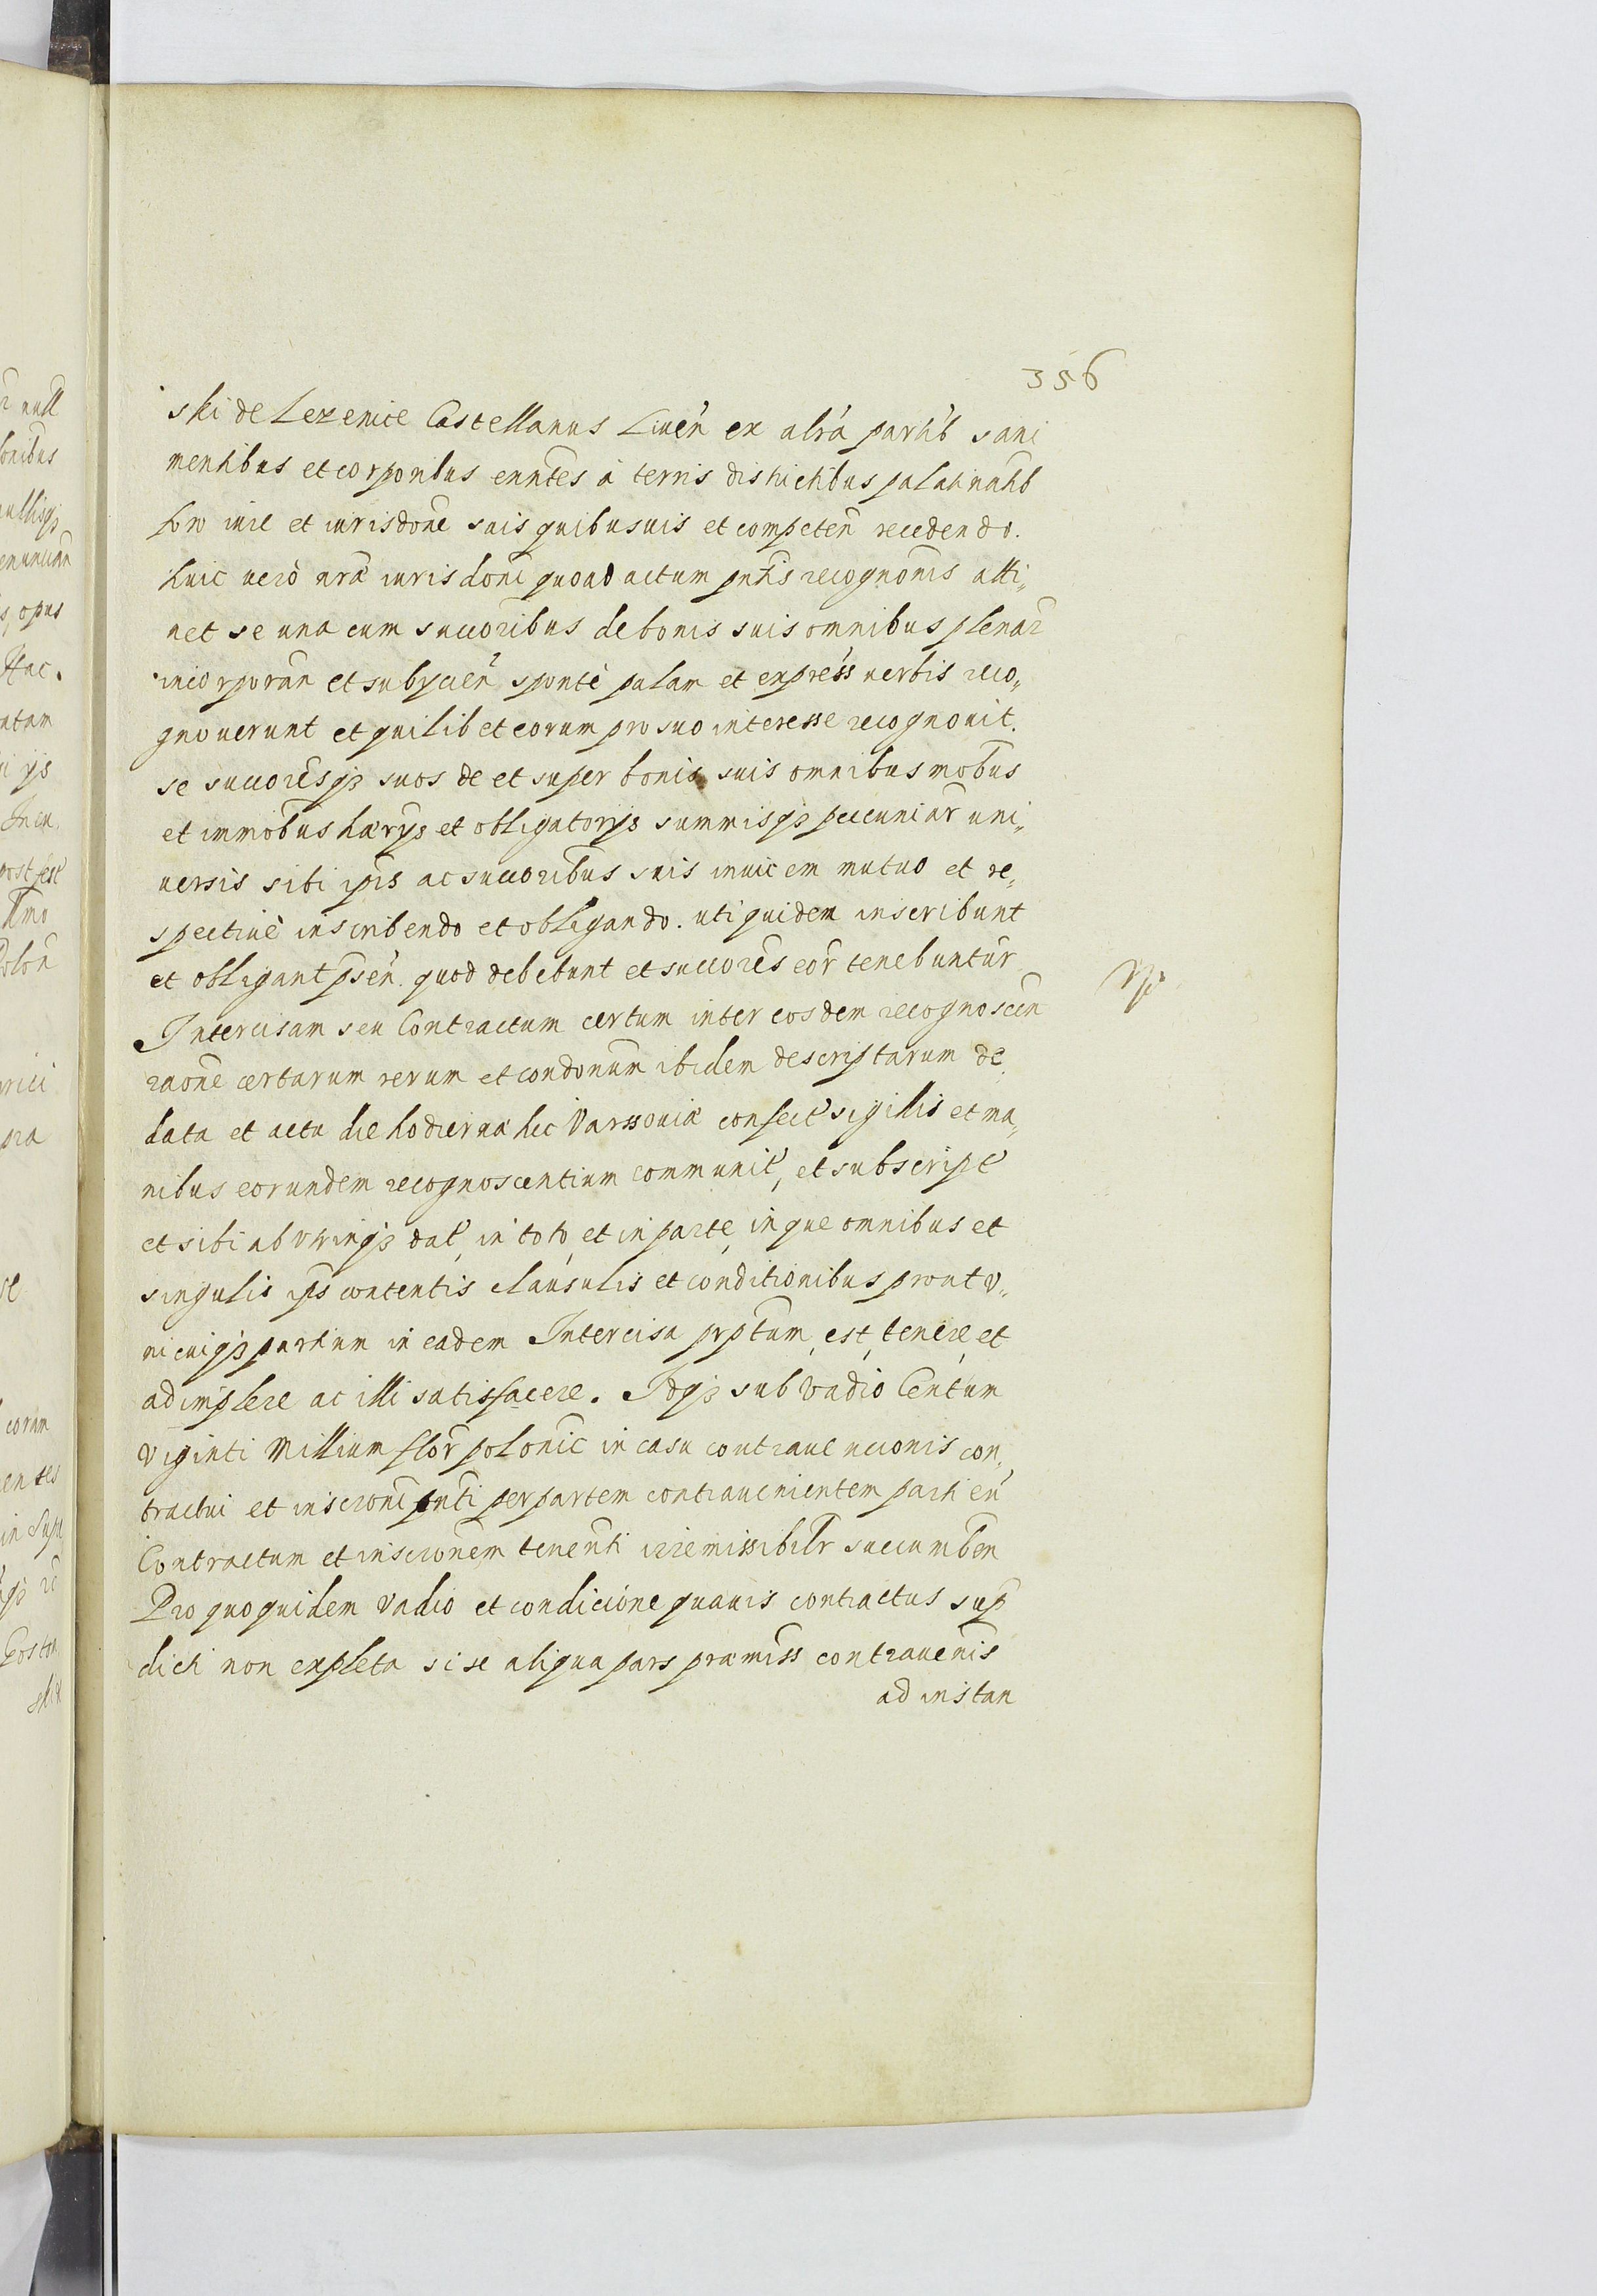 356
ski de Lezenice Castellanus Liuen ex altra partib sani
mentibus et corporibus enntes a terris districtibus palatinatib
foro iure et iurisdone suis quibusuis et competen recedendo.
huic uero nrae iurisdoni quoad actum pntis recognonis atti„
net se una cum succoribus de bonis suis omnibus plenar
incorporan et subycien sponte palam et express uerbis reco„
gnouerunt et quilibet eorum pro suo interesse recognouit.
se succoresq3 suos de et super bonis suis omnibus mobus
et immobus haerys et obligatorys summisq3 pecuniar uni„
uersis sibi ipis ac succoribus suis inuicem mutuo et re„
spectiue inscribendo et obligando. uti quidem inscribunt
et obligant psen. quod debebunt et succores eor tenebuntur
Intercisam seu Contractum certum inter eosdem recognoscen
raone certarum rerum et condonum ibidem descriptarum de
data et actu die hodierna hic Varssouiae confect sigillis et ma„
nibus eorundem recognoscentium communit, et subscript
et sibi ab vtrinq3 dat, in toto, et in parte, inque omnibus et
singulis ips contentis clausulis et conditionibus prout v„
nicuiq3 partium in eadem Intercisa prptum, est, tenere, et
adimplere ac illi satisfacere. Idq3 sub vadio Centum
viginti Millium flor polonic in casu contrauencionis con„
tractui et inscrioni pnti per partem contrauenientem parti en
Contractum et inscrionem tenenti irremissibilr succumben
Pro quo quidem vadio et condicione quauis contractus sup
dicti non expleta si se aliqua pars praemiss contrauenis
ad instan